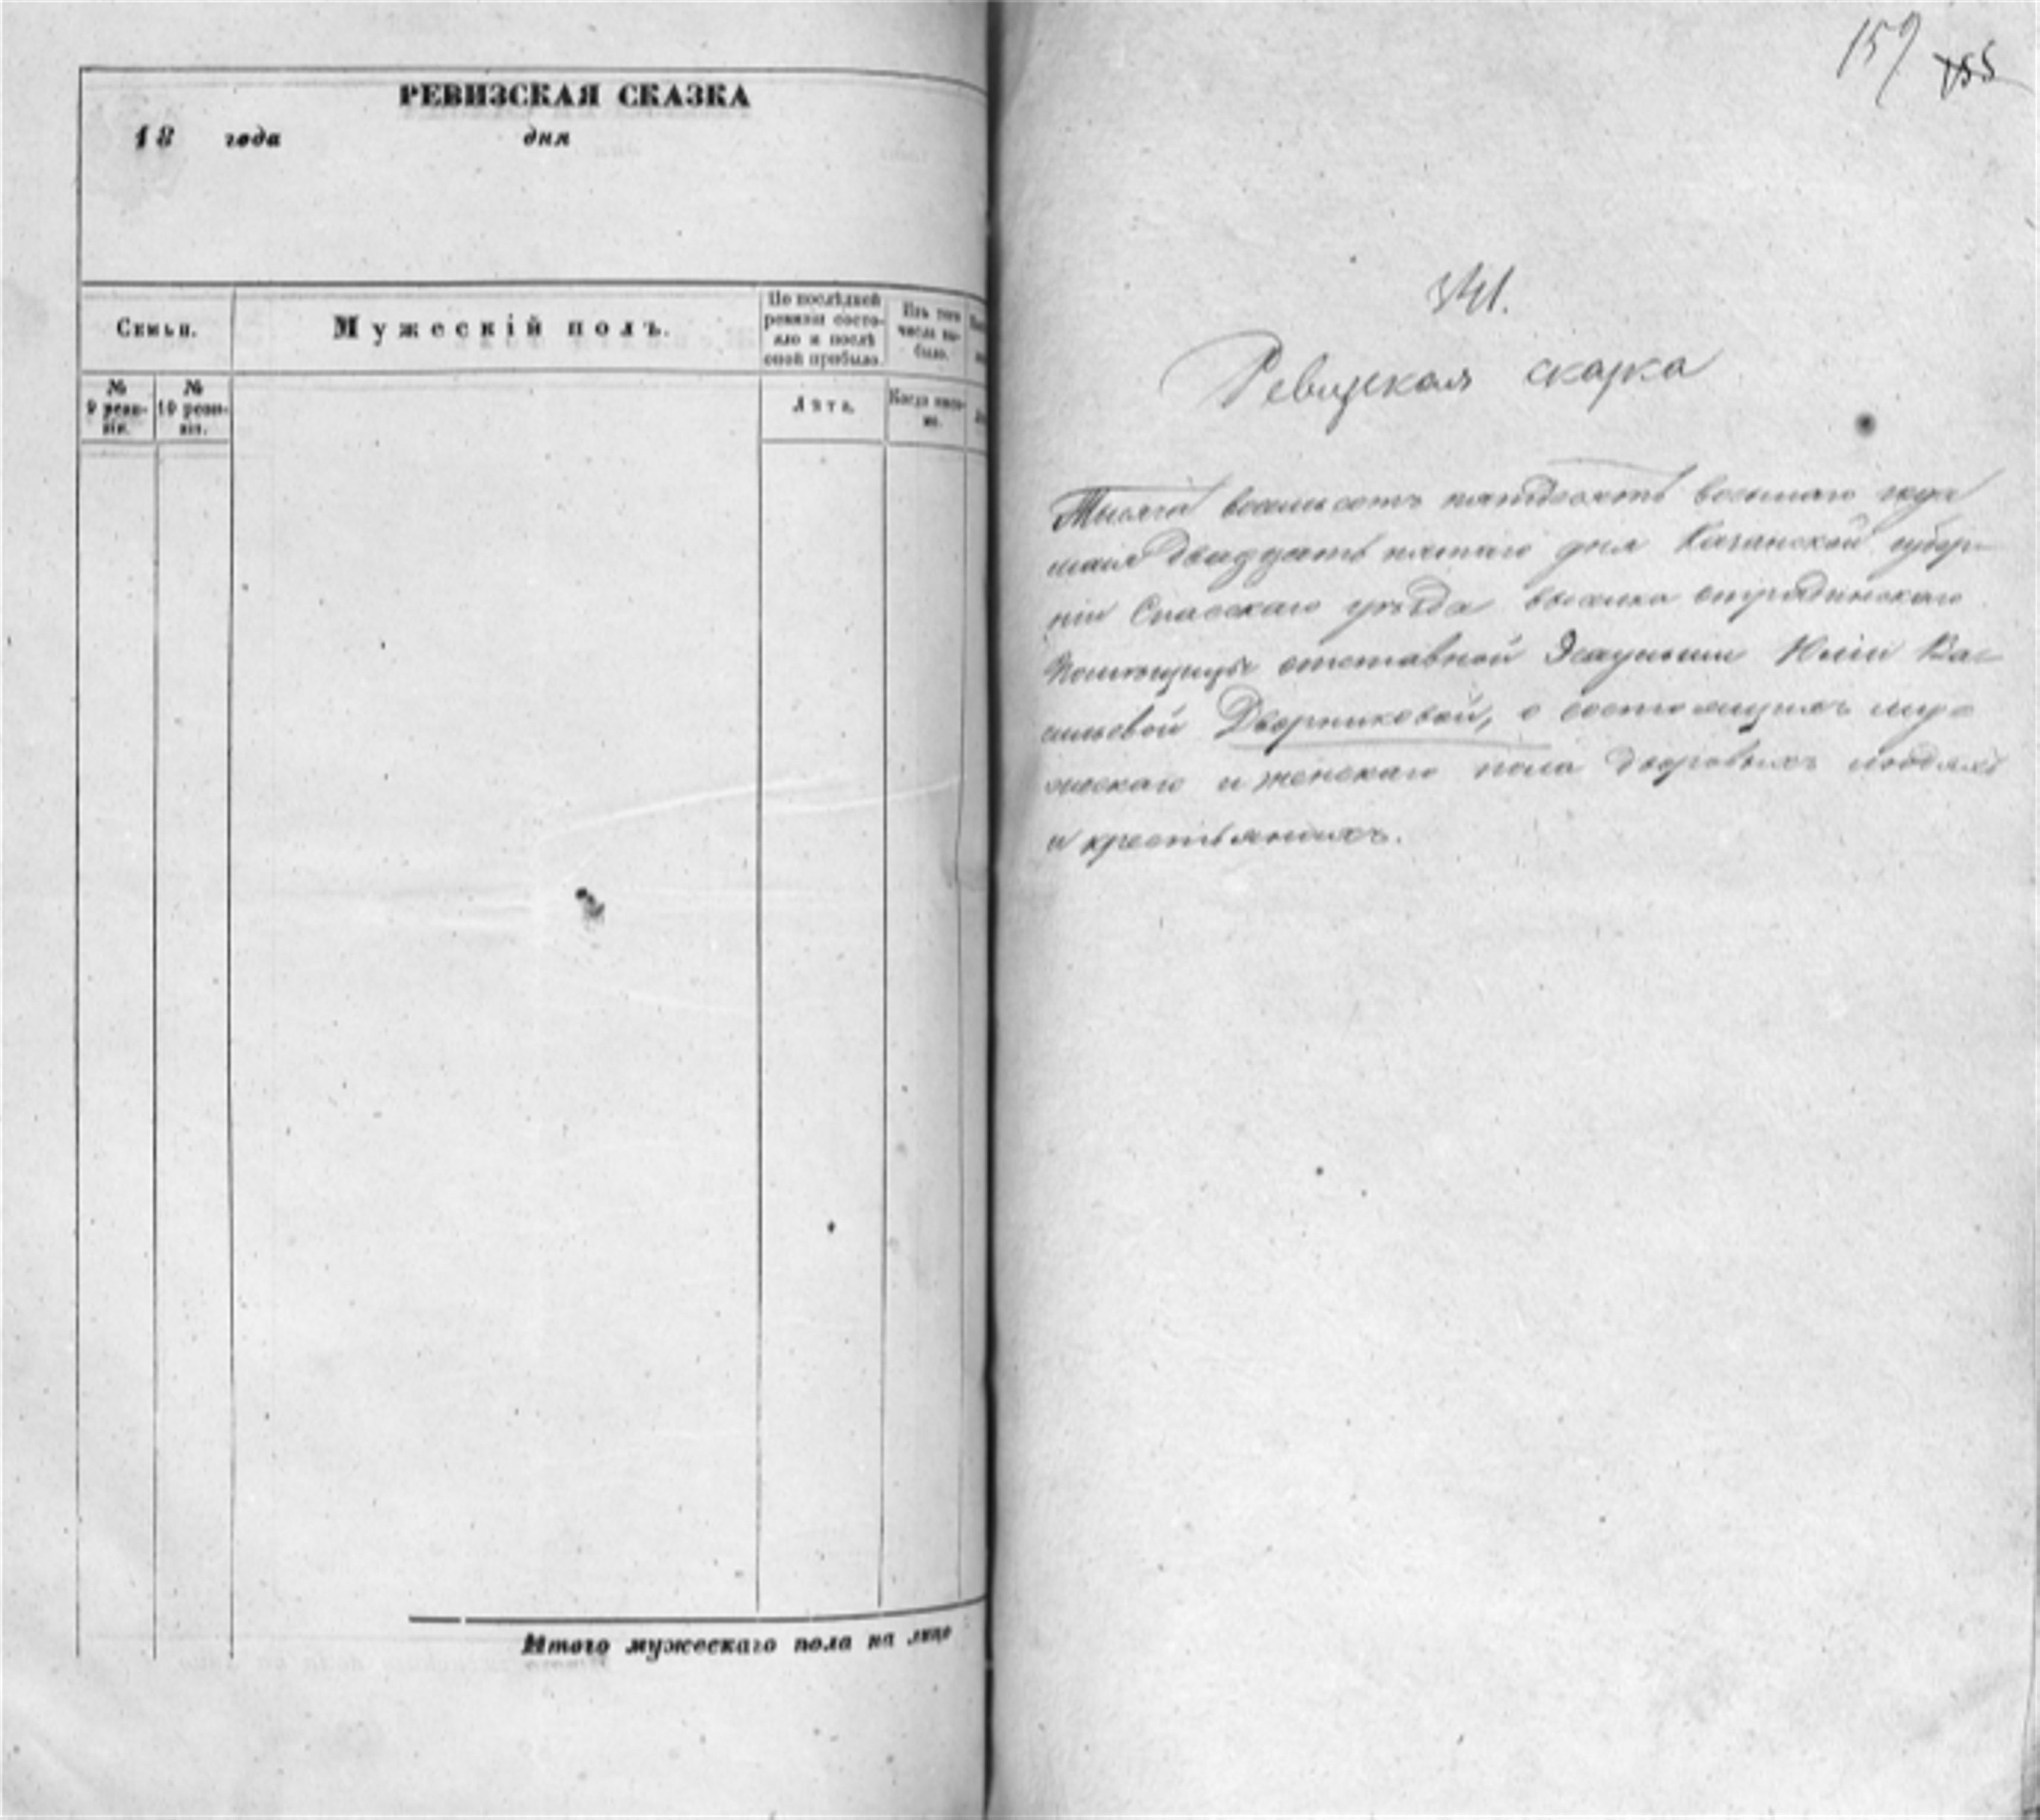 РЕВИЗСКАЯ СКАЗКА
18 года дня
Семьи.
Мужескій полъ.
По послѣдней
ревизіи состо-
яло и послѣ
оной прибыло.
Изъ того
числа вы-
было.
№
9 реви-
зіи.
№
10 реви-
зіи.
Лѣта.
Когда имен-
но.
Итого мужескаго пола на лицо
159 155
341.
Ревизская сказка
Тысяча восемьсотъ пятьдесятъ восьмаго года
маія двадцать пятаго дня Казанской губер-
ніи Спасскаго уѣзда выселка отрадинскаго
Помѣщицы отставной Эсаульши Юліи Ва-
сильевой Дворниковой, о состоящихъ му-
жескаго и женскаго пола дворовыхъ людяхъ
и крестьянахъ.